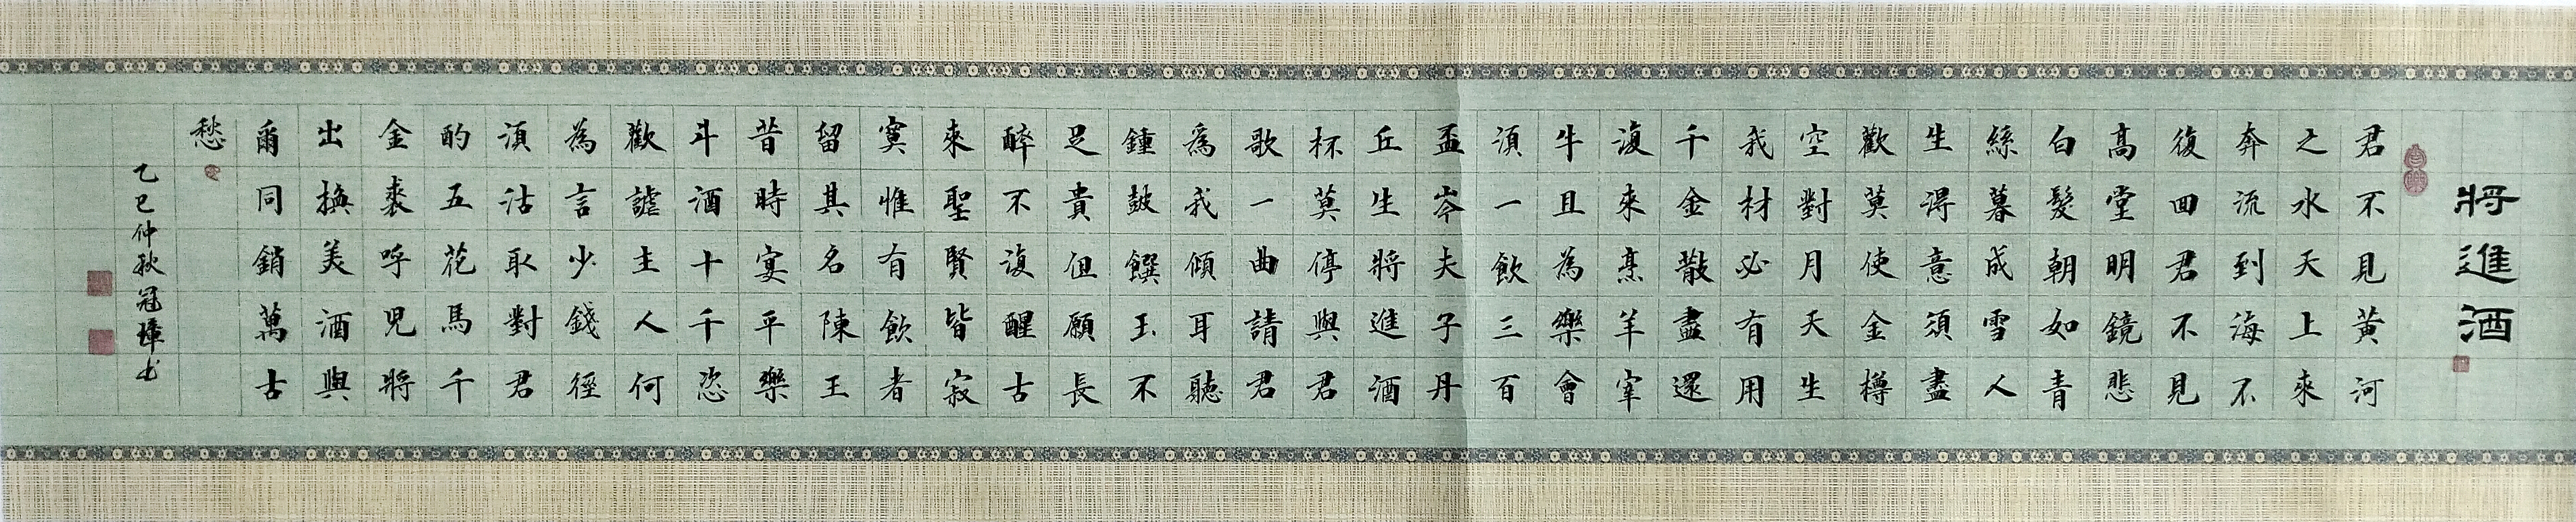 將進酒
君不見黃河
之水天上來
奔流到海不
復囬君不見
髙堂明鏡悲
白髮朝如青
絲暮成雪人
生得意須盡
歡莫使金樽
空對月天生
我材必有用
千金散盡還
復來烹羊宰
牛且為樂會
須一飲三百
盃岑夫子丹
丘生將進酒
杯莫停與君
歌一曲請君
爲我傾耳聽
鍾鼓饌玉不
足貴但願長
醉不復醒古
來聖賢皆寂
寞惟有飲者
留其名陳王
昔時宴平樂
斗酒十千恣
歡謔主人何
為言少錢徑
須沽取對君
酌五花馬千
金裘呼兒將
出換美酒與
爾同銷萬古
愁
乙巳仲秋冠璋书